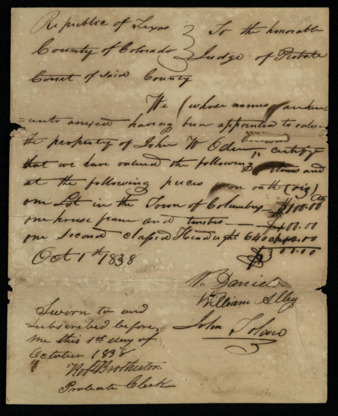 Republic of Texas To the honorable
County of Colorado Judge of Probate
Court of Said County
We (whose names are
unto annexed having been appointed to value
the property of John W Oder certify
that we have valued the following and
at the following prices on oath (viz)
one Lot in the Town of Columbus $100.00
one house frame and
one second classed Headright 640
Oct 1st 1838
W Daniels
William Alley
John
Sworn to and
Subscribed before
me this 1st day of
October 1838
Brotherton
Probate Clerk